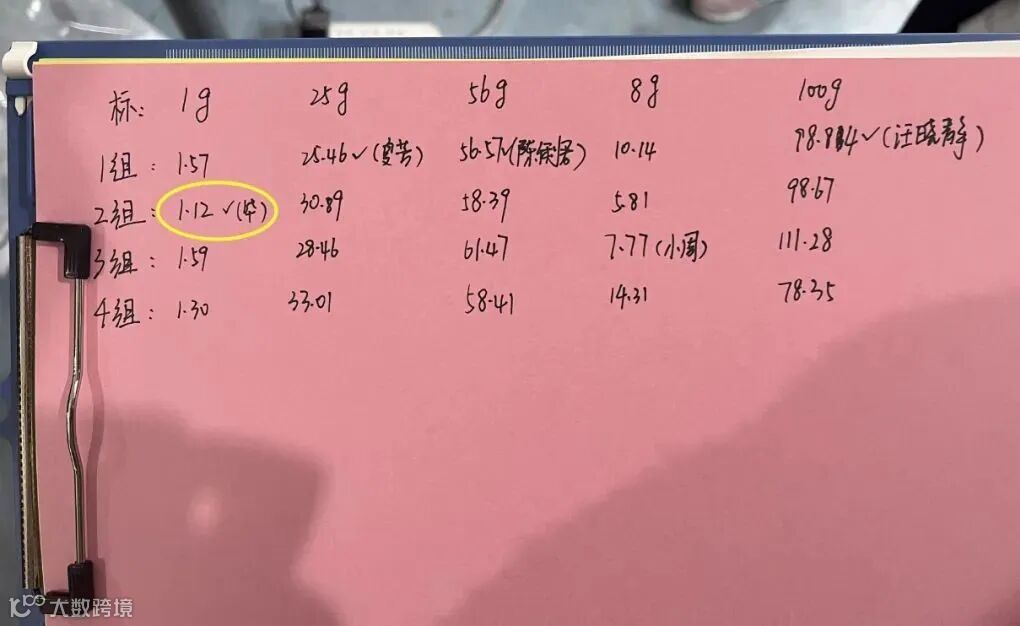 标: 1g 25g 56g 8g 100g
1组: 1.57 25.46✓( 56.57✓(陈 10.14 98.84✓(汪晓静)
2组: 1.12✓(华) 30.89 58.39 5.81 98.67
3组: 1.59 28.46 61.47 7.77(小周) 111.28
4组: 1.30 33.01 58.41 14.31 78.35
大数跨境